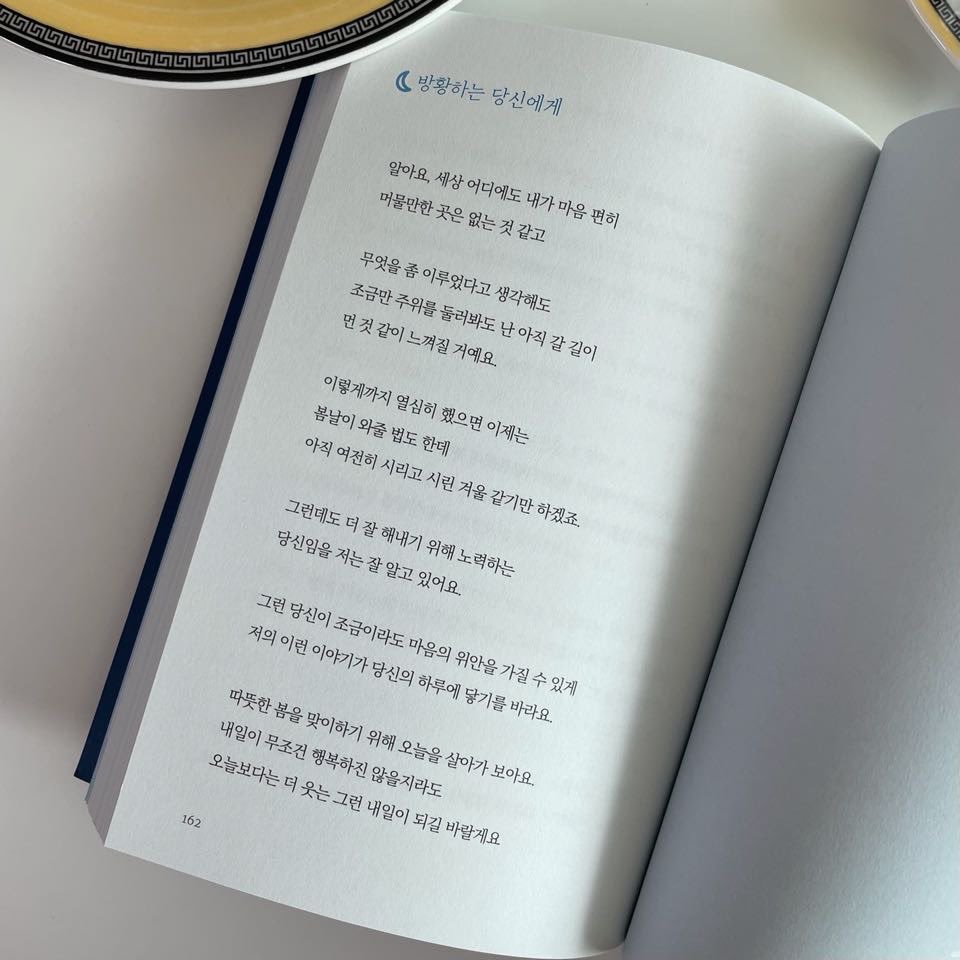 방황하는 당신에게
알아요, 세상 어디에도 내가 마음 편히
머물만한 곳은 없는 것 같고
무엇을 좀 이루었다고 생각해도
조금만 주위를 둘러봐도 난 아직 갈 길이
먼 것 같이 느껴질 거예요.
이렇게까지 열심히 했으면 이제는
봄날이 와줄 법도 한데
아직 여전히 시리고 시린 겨울 같기만 하겠죠.
그런데도 더 잘 해내기 위해 노력하는
당신임을 저는 잘 알고 있어요.
그런 당신이 조금이라도 마음의 위안을 가질 수 있게
저의 이런 이야기가 당신의 하루에 닿기를 바라요.
따뜻한 봄을 맞이하기 위해 오늘을 살아가 보아요.
내일이 무조건 행복하진 않을지라도
오늘보다는 더 웃는 그런 내일이 되길 바랄게요
162